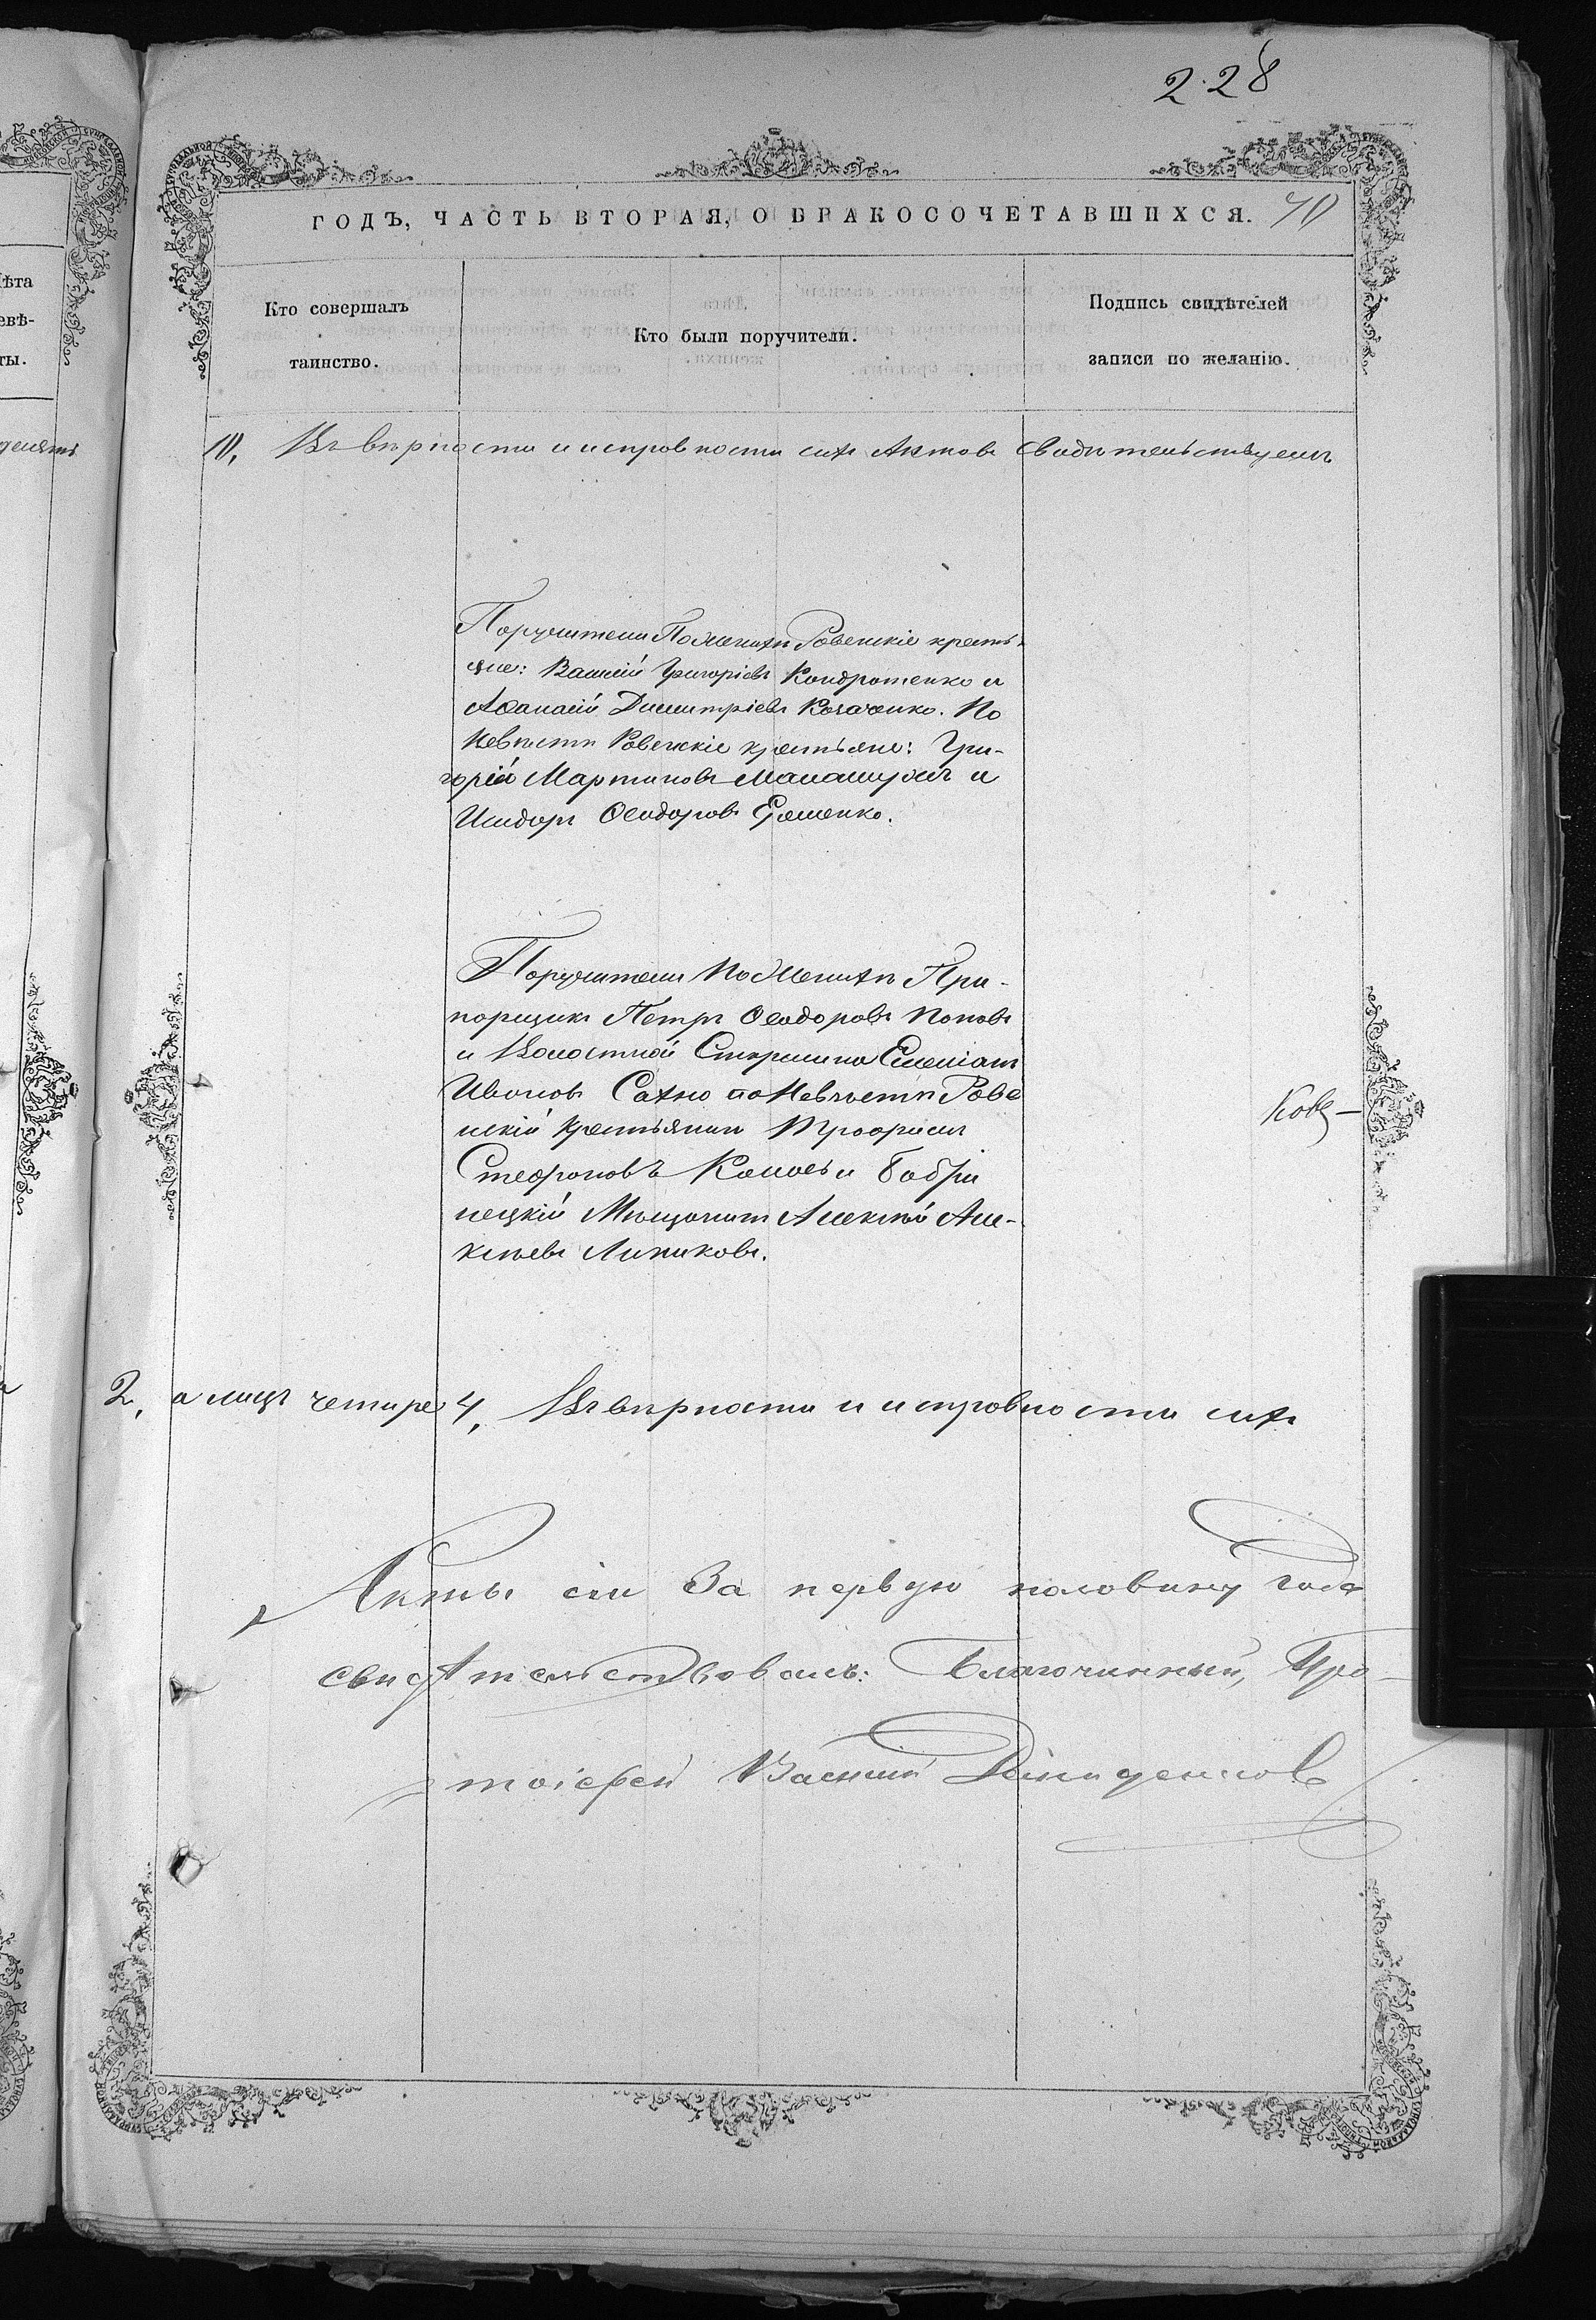 228
ГОДЪ, ЧАСТЬ ВТОРАЯ, О БРАКОСОЧЕТАВШИХСЯ.
Кто совершалъ
таинство.
Кто были поручители.
Подпись свидѣтелей
записи по желанію.
10, Въ вѣрности и исправности сихъ Актовъ свидѣтельствуемъ
Поручители По Женихѣ Ровенскіе кресть-
яне: Василій Григоріевъ Кондратенко и
Аѳанасій Димитріевъ Козаченко. По
Невѣстѣ Ровенскіе крестьяне: Гри-
горій Мартиновъ и
Исидоръ Ѳеодоровъ Ярешенко.
Поручители По Женихѣ Пра-
порщикъ Петръ Ѳеодоровъ Поповъ
и Волостной Старшина Емеліанъ
Ивановъ Сахно по Невѣстѣ Рове
нскій Крестьянинъ Трофимъ
Стефановъ и Бобри
нецкій Мѣщанинъ Алексѣй Але-
ксѣевъ Липиковъ.
2, а лицъ четыре 4, Въ вѣрности и исправности сихъ
Акты сіи За первую половину года
свидѣтельствовалъ: Благочинный, Про-
тоіерей Василій
ѣта
евѣ-
ты.